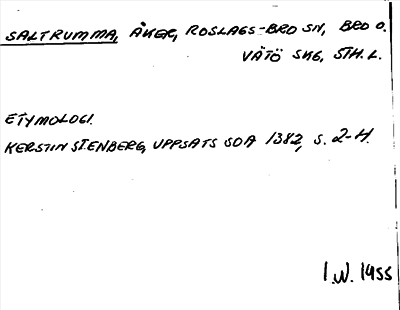 SALTRUMMA, ÅKER, ROSLAGS-BRO SN, BRO O.
VÄTÖ SKG, STH. L.
ETYMOLOGI.
KERSTIN STENBERG, UPPSATS SOA 1382, S. 2-H.
I.W. 1955